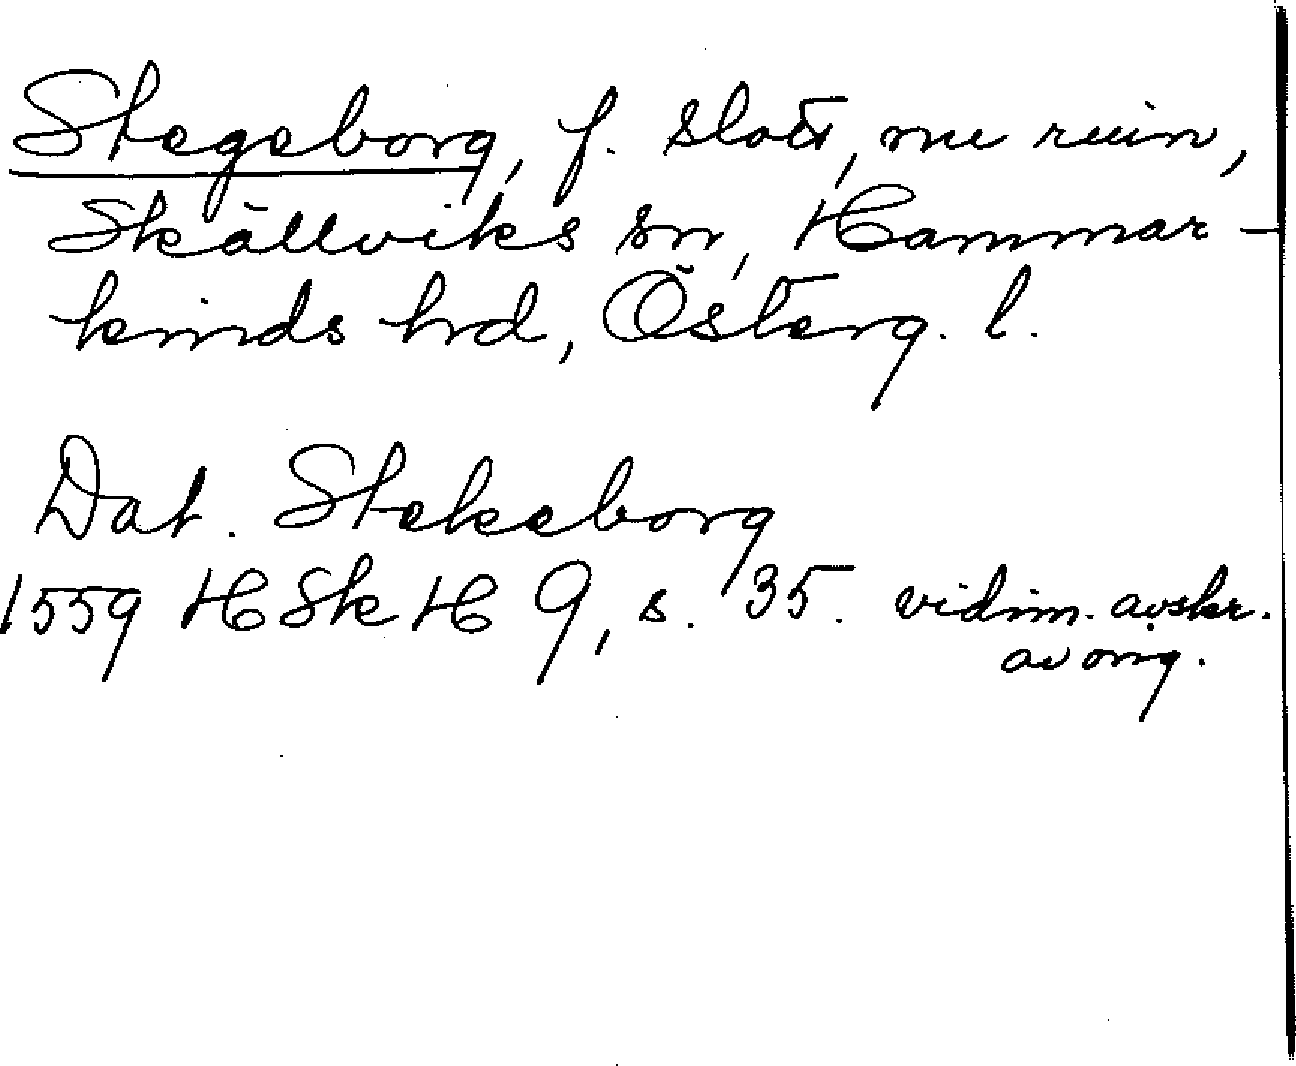 Stegeborg, f. slott, nu ruin,
Skällviks sn, Hammar-
kinds hrd, Österg. l.
Dat. Stekeborg
1559 HSkH 9, s. 35. vidim. avskr.
av orig.